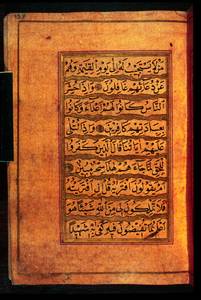 مَنْ لَا يَسْتَجِيبُ لَهُ إِلَى يَوْمِ الْقِيمَةِ وَهُمْ
عَنْ دُعَائِهِمْ غَافِلُونَ وَإِذَا حُشِرَ
النَّاسُ كَانُوا لَهُمْ أَعْدَاءً وَكَانُوا
بِعِبَادَتِهِمْ كَافِرِينَ وَإِذَا تُتْلَى
عَلَيْهِمْ آيَاتُنَا بَيِّنَاتٍ قَالَ الَّذِينَ كَفَرُوا
لِلْحَقِّ لَمَّا جَاءَهُمْ هَذَا سِحْرٌ مُبِينٌ
أَمْ يَقُولُونَ افْتَرَيهُ قُلْ إِنِ افْتَرَيْتُهُ
فَلَا تَمْلِكُونَ لِي مِنَ اللَّهِ شَيْئًا هُوَ
أَعْلَمُ بِمَا تُفِيضُونَ فِيهِ كَفَى بِهِ شَهِيدًا